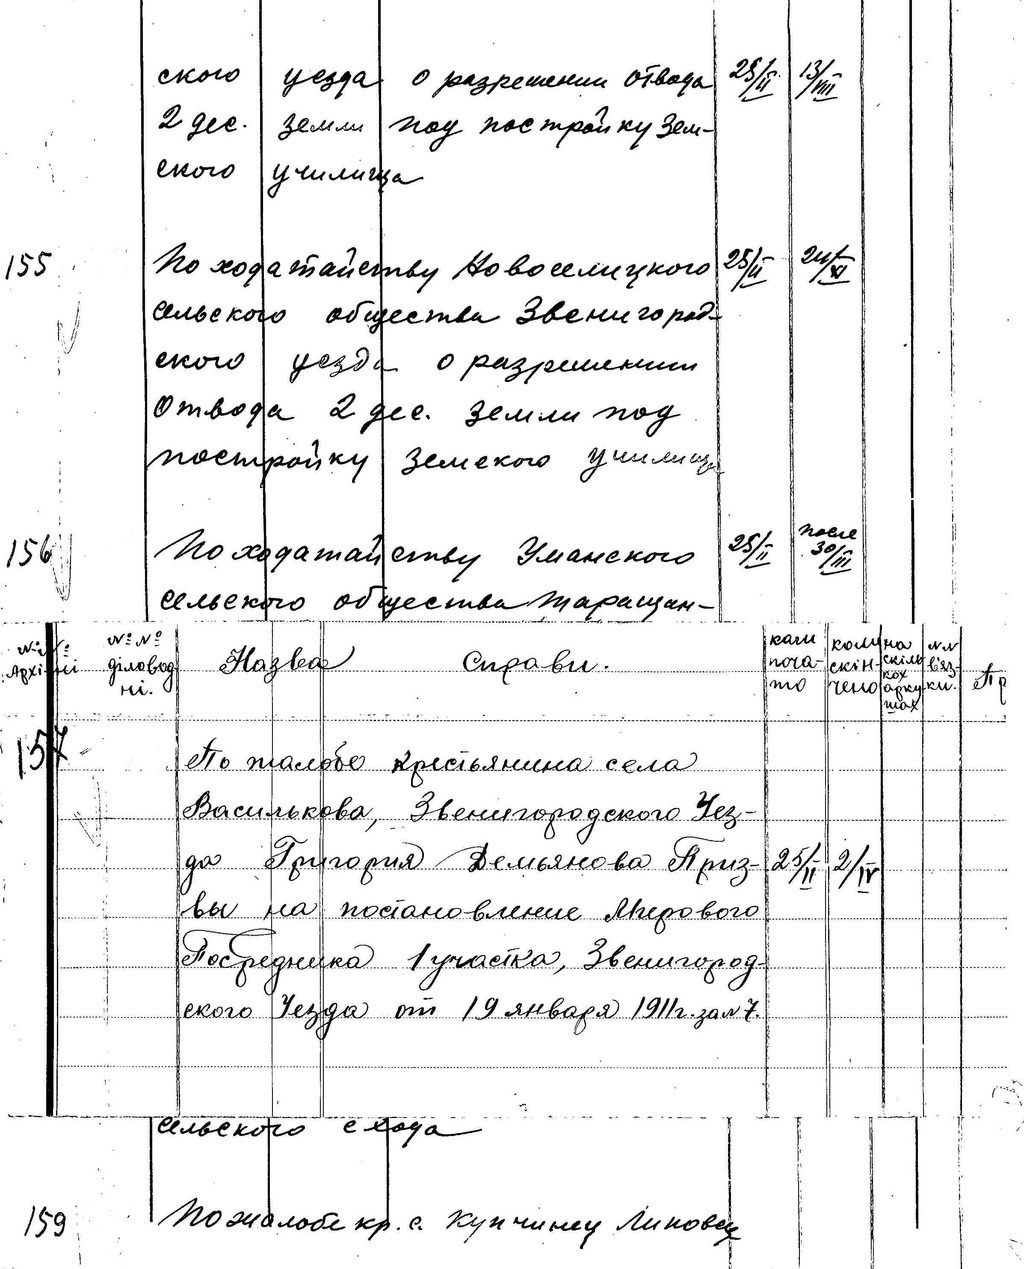 ского уезда о разрешении отвода 25/II 13/VIII
2 дес. земли под постройку Зем-
ского училища
155 По ходатайству Новоселицкого 25/II 24/XI
сельского общества Звенигород-
ского уезда о разрешении
Отвода 2 дес. земли под
постройку земского училища
156 По ходатайству Уманского 25/II после 30/III
сельского общества Таращан-
№№ Архівні №№ діловод ні. Назва Справи. кали поча- то коли скін- чено на скіль кох арку шах №№ вяз- ки. Пр
157
По жалобе крестьянина села
Василькова, Звенигородского Уез-
да Григория Демьянова Приз- 25/II 2/IV
вы на постановление Мирового
Посредника 1 участка, Звенигород-
ского Уезда от 19 января 1911г. за №7.
сельского схода
159 По жалобе кр. с. Купчинец Липовец